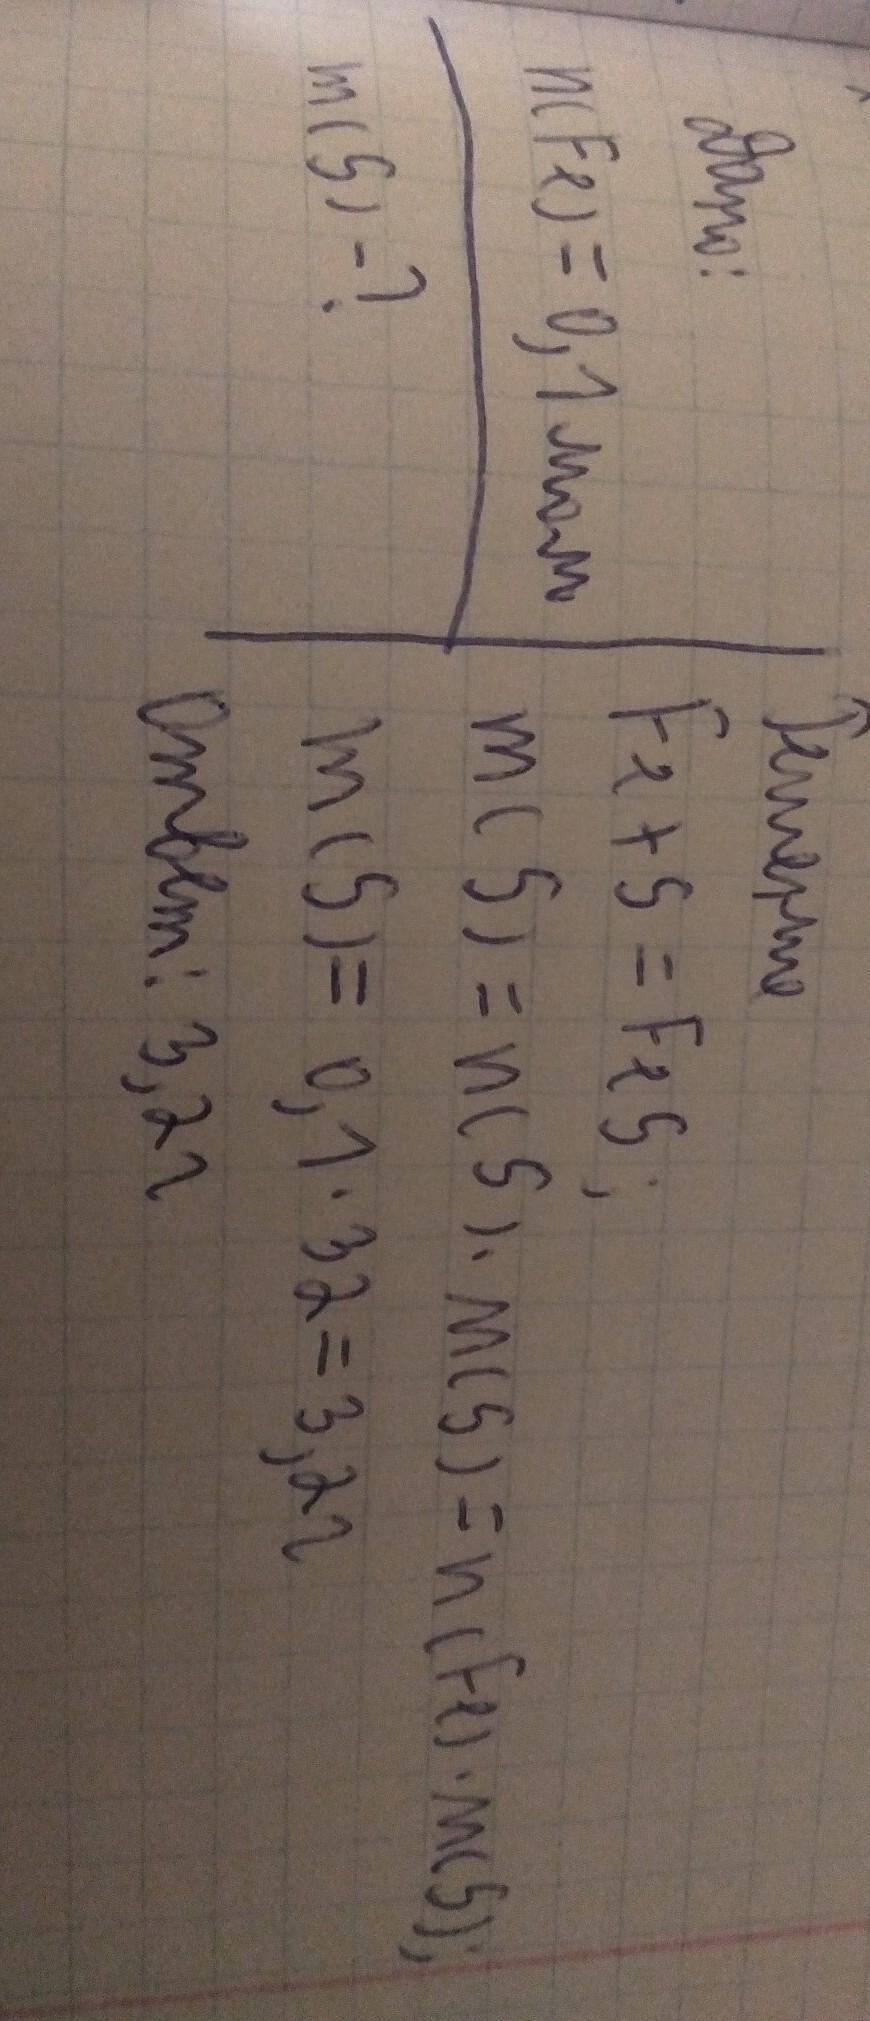 Дано:
n(Fe) = 0,1 моль
m(S) - ?
Решение
Fe + S = FeS;
m(S) = n(S) · M(S) = n(Fe) · M(S);
m(S) = 0,1 · 32 = 3,2 г
Ответ: 3,2 г